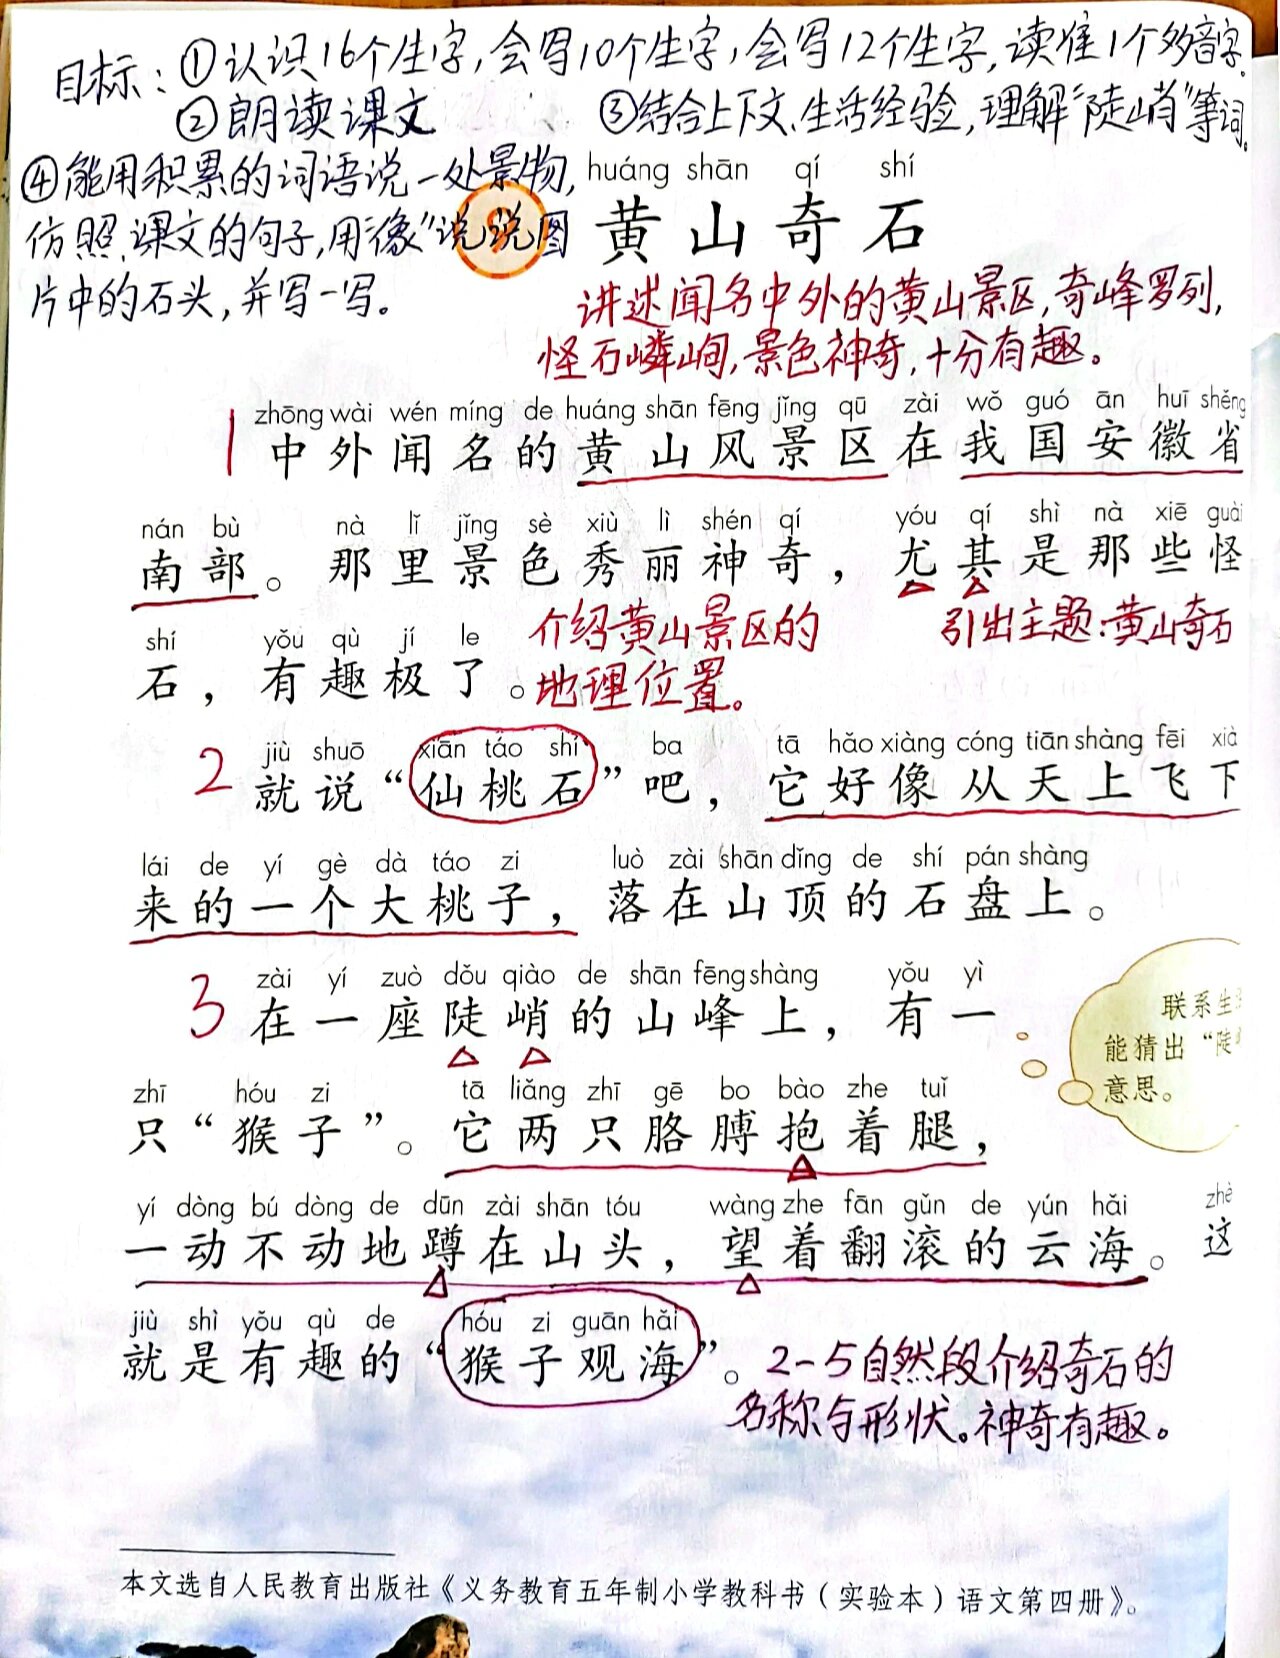 目标：①认识16个生字，会写10个生字，会写12个生字，读准1个多音字。
②朗读课文 ③结合上下文、生活经验，理解“陡峭”等词。
④能用积累的词语说一处景物，
仿照课文的句子，用“像”说说图
片中的石头，并写一写。
huáng shān qí shí
黄山奇石
讲述闻名中外的黄山景区，奇峰罗列，
怪石嶙峋，景色神奇，十分有趣。
zhōng wài wén míng de huáng shān fēng jǐng qū zài wǒ guó ān huī shěng
1 中外闻名的黄山风景区在我国安徽省
nán bù nà lǐ jǐng sè xiù lì shén qí yóu qí shì nà xiē guài
南部。那里景色秀丽神奇，尤其是那些怪
介绍黄山景区的 引出主题：黄山奇石
shí yǒu qù jí le
石，有趣极了。
地理位置。
jiù shuō xiān táo shí ba tā hǎo xiàng cóng tiān shàng fēi xià
2 就说“仙桃石”吧，它好像从天上飞下
lái de yí gè dà táo zi luò zài shān dǐng de shí pán shàng
来的一个大桃子，落在山顶的石盘上。
zài yí zuò dǒu qiào de shān fēng shàng yǒu yì
3 在一座陡峭的山峰上，有一
联系生
能猜出“陡
意思。
zhī hóu zi tā liǎng zhī gē bo bào zhe tuǐ
只“猴子”。它两只胳膊抱着腿，
yí dòng bú dòng de dūn zài shān tóu wàng zhe fān gǔn de yún hǎi zhè
一动不动地蹲在山头，望着翻滚的云海。这
jiù shì yǒu qù de hóu zi guān hǎi
就是有趣的“猴子观海”。
2-5自然段介绍奇石的
名称与形状。神奇有趣。
本文选自人民教育出版社《义务教育五年制小学教科书（实验本）语文第四册》。